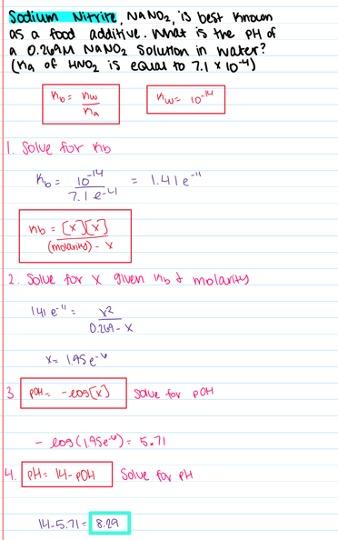 Sodium Nitrite, NaNO2, is best known
as a food additive. What is the pH of
a 0.269M NaNO2 solution in water?
(Ka of HNO2 is equal to 7.1 x 10^-4)
Kb = Kw/Ka
Kw = 10^-14
1. Solve for Kb
Kb = 10^-14 / 7.1e^-4 = 1.41e^-11
Kb = [x][x] / (molarity) - x
2. Solve for x given Kb & molarity
1.41e^-11 = x^2 / 0.269 - x
x = 1.95e^-6
3. pOH = -log[x] Solve for pOH
-log(1.95e^-6) = 5.71
4. pH = 14 - pOH Solve for pH
14 - 5.71 = 8.29